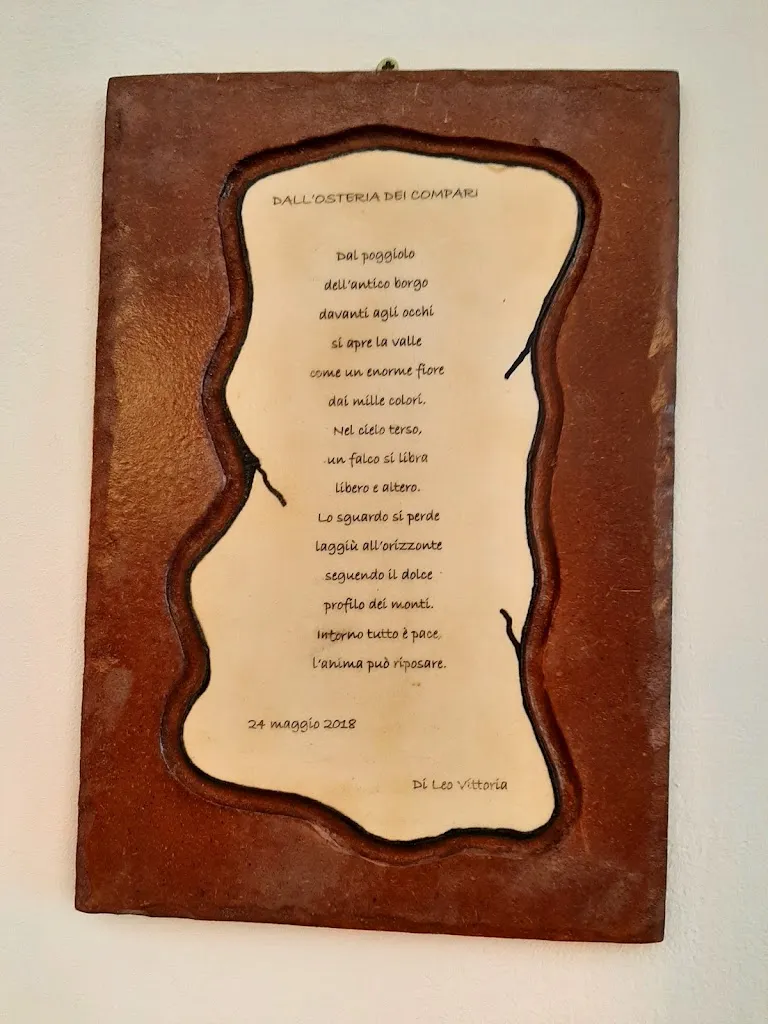 DALL'OSTERIA DEI COMPARI
Dal poggiolo
dell'antico borgo
davanti agli occhi
si apre la valle
come un enorme fiore
dai mille colori.
Nel cielo terso,
un falco si libra
libero e altero.
Lo sguardo si perde
laggiù all'orizzonte
seguendo il dolce
profilo dei monti.
Intorno tutto è pace,
l'anima può riposare.
24 maggio 2018
Di Leo Vittoria